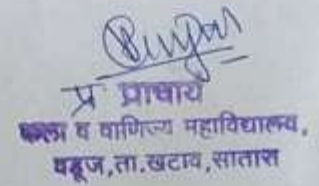 प्र प्राचार्य
कला व वाणिज्य महाविद्यालय,
वडूज,ता.खटाव,सातारा